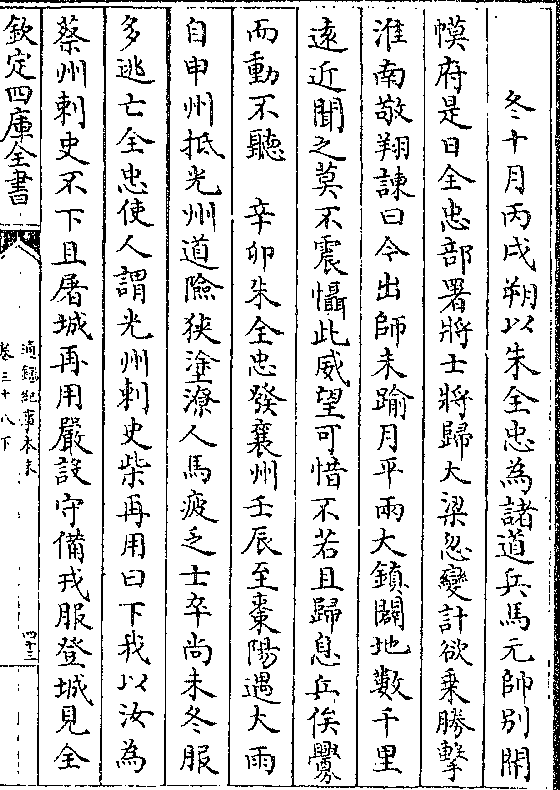 冬十月丙戌朔以朱全忠為諸道兵馬元帥别開
幙府是日全忠部署將士將歸大梁忽變計欲乗勝擊
淮南敬翔諫曰今出師未踰月平兩大鎮闢地數千里
遠近聞之莫不震懾此威望可惜不若且歸息兵俟釁
而動不聽　辛卯朱全忠發襄州壬辰至棗陽遇大雨
自申州抵光州道險狹塗潦人馬疲乏士卒尚未冬服
多逃亡全忠使人謂光州刺史柴再用曰下我以汝為
蔡州刺史不下且屠城再用嚴設守備戎服登城見全
欽定四庫全書
通鑑紀事本末
卷三十八下
四十三